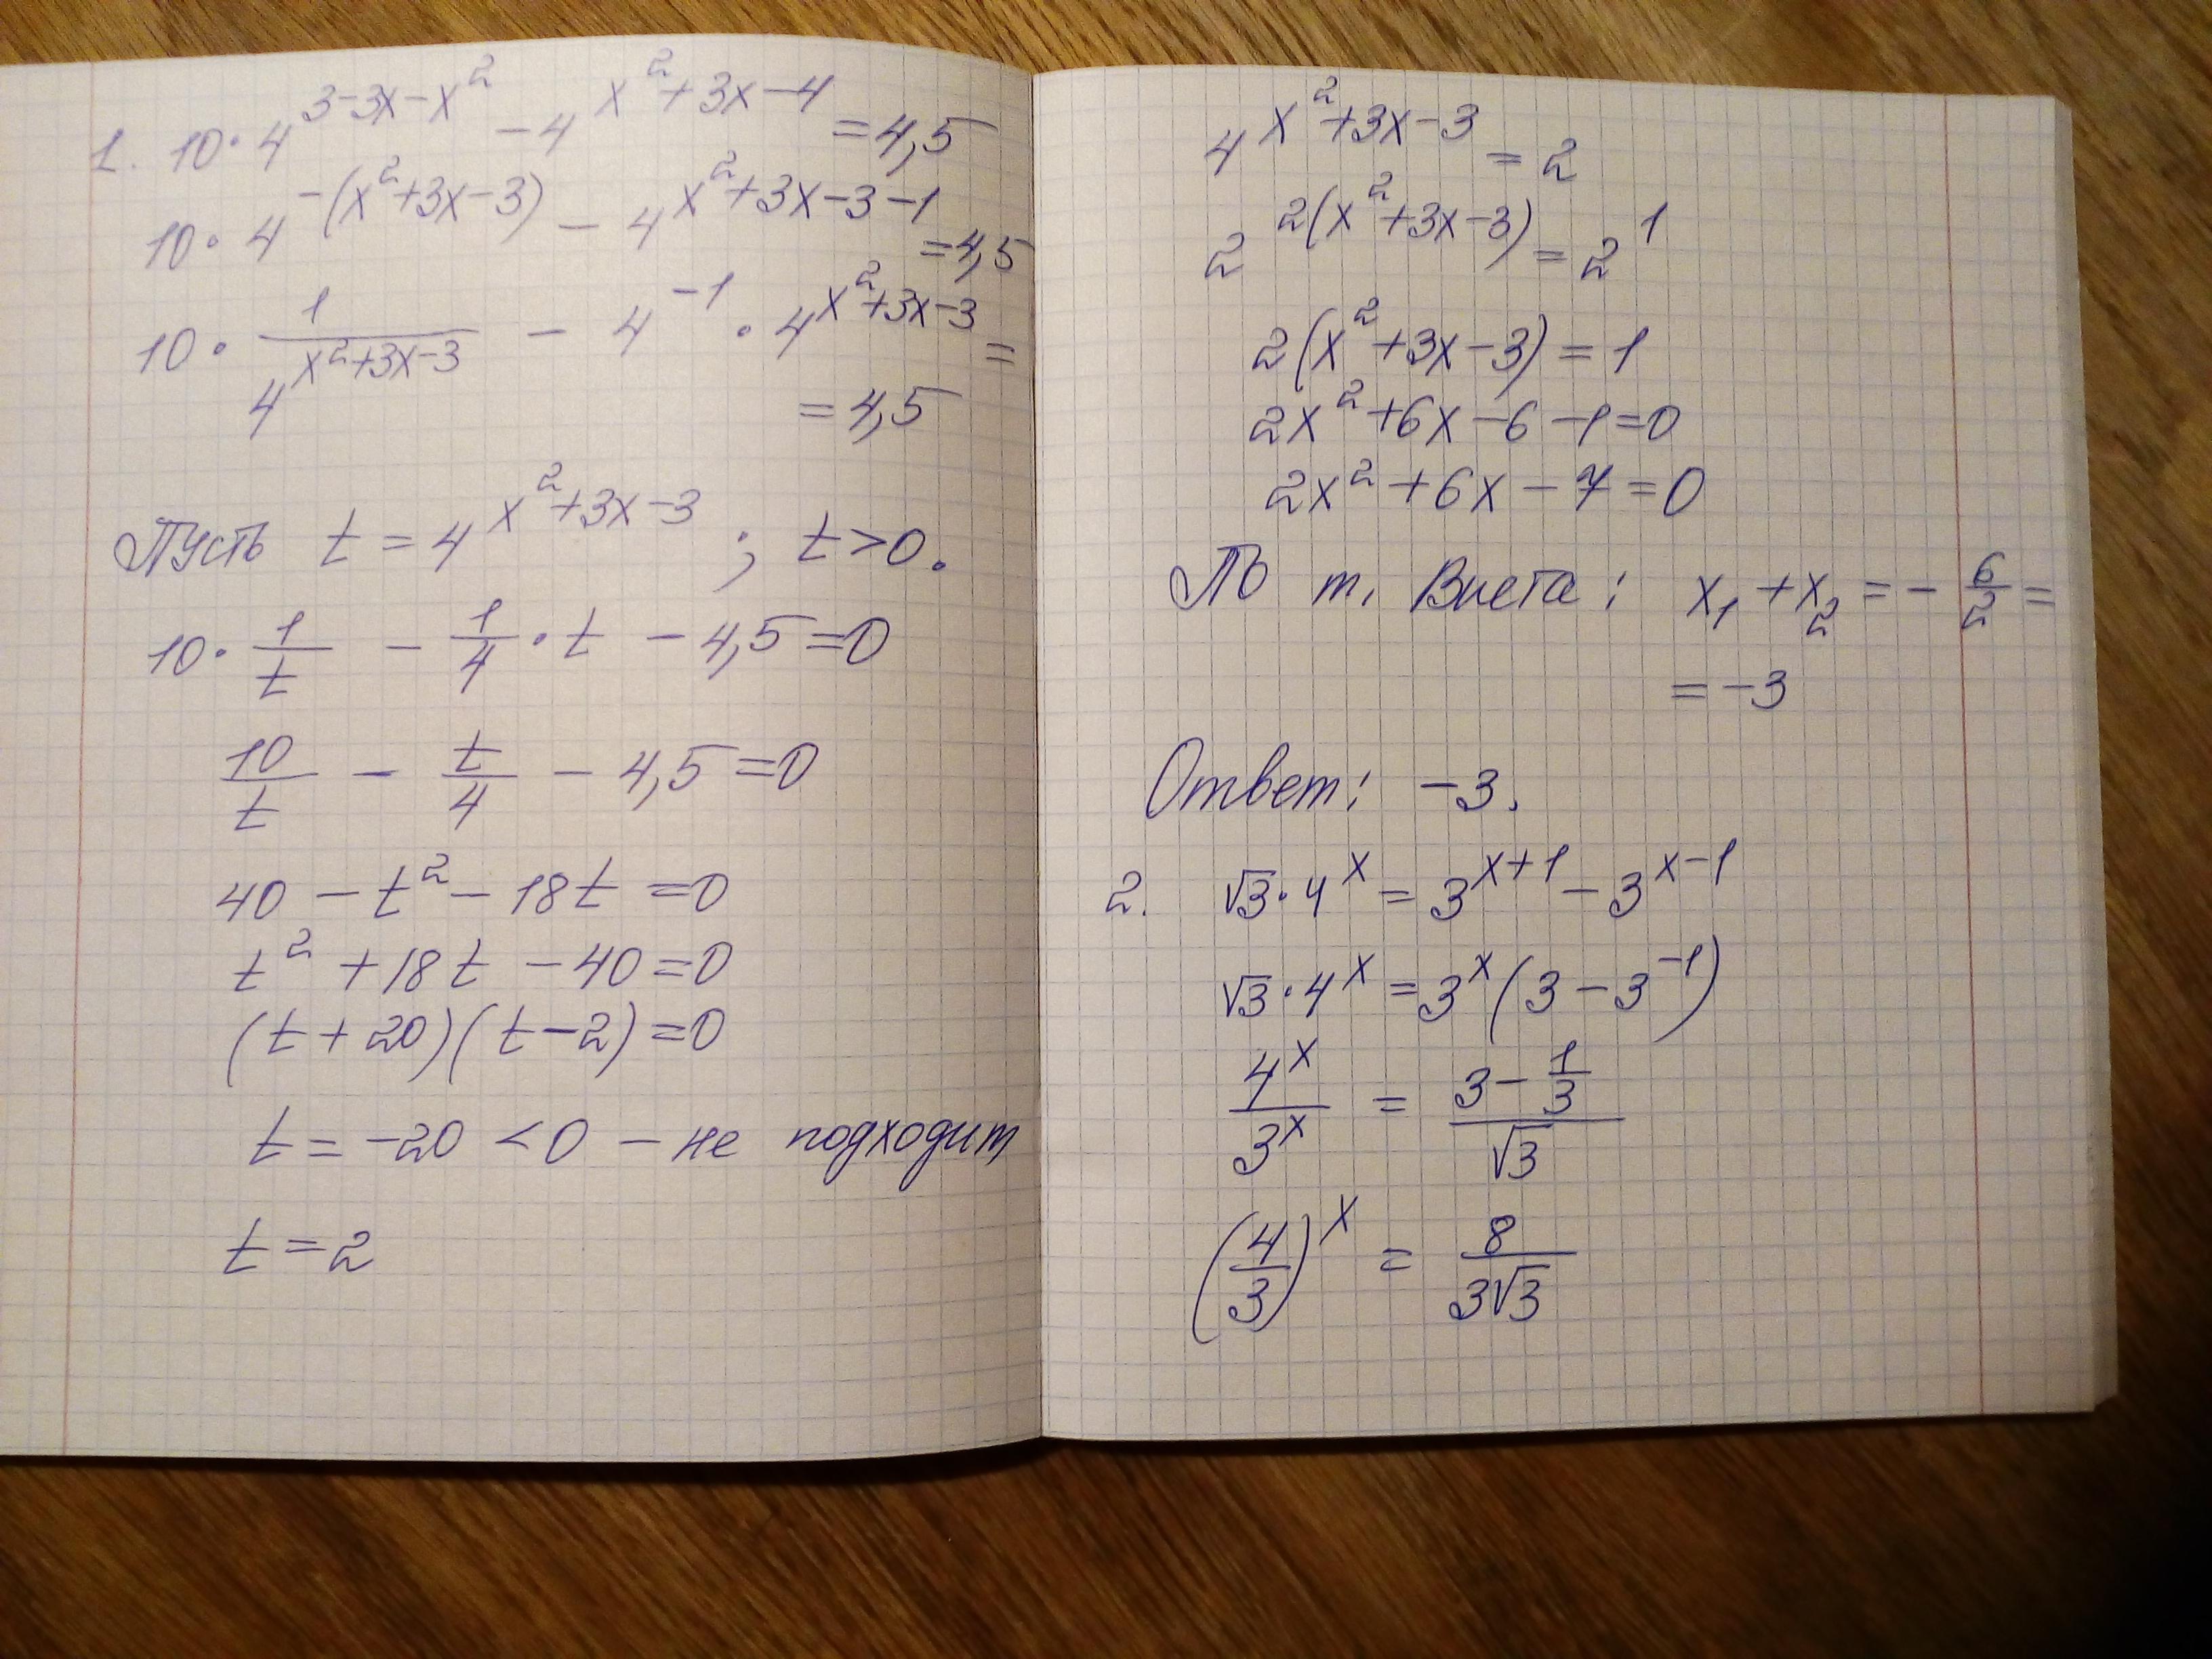 1. 10·4^(3-3x-x²) - 4^(x²+3x-4) = 4,5
10·4^(-(x²+3x-3)) - 4^(x²+3x-3-1) = 4,5
10·1/4^(x²+3x-3) - 4^(-1)·4^(x²+3x-3) =
= 4,5
Пусть t = 4^(x²+3x-3); t>0.
10·1/t - 1/4·t - 4,5 = 0
10/t - t/4 - 4,5 = 0
40 - t² - 18t = 0
t² + 18t - 40 = 0
(t+20)(t-2) = 0
t = -20 < 0 - не подходит
t = 2
4^(x²+3x-3) = 2
2^(2(x²+3x-3)) = 2^1
2(x²+3x-3) = 1
2x²+6x-6-1=0
2x²+6x-7=0
По т. Виета: x₁+x₂ = -6/2 =
= -3
Ответ: -3.
2. √3·4^x = 3^(x+1) - 3^(x-1)
√3·4^x = 3^x(3-3^(-1))
4^x/3^x = (3-1/3)/√3
(4/3)^x = 8/(3√3)